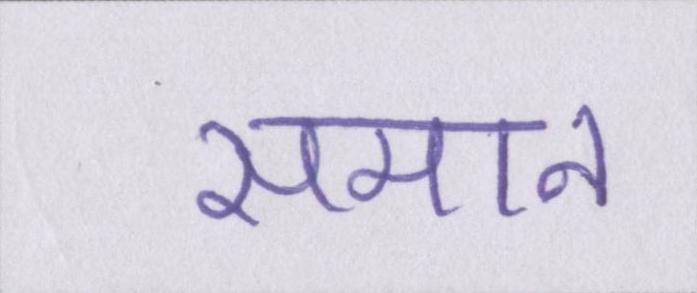 समान